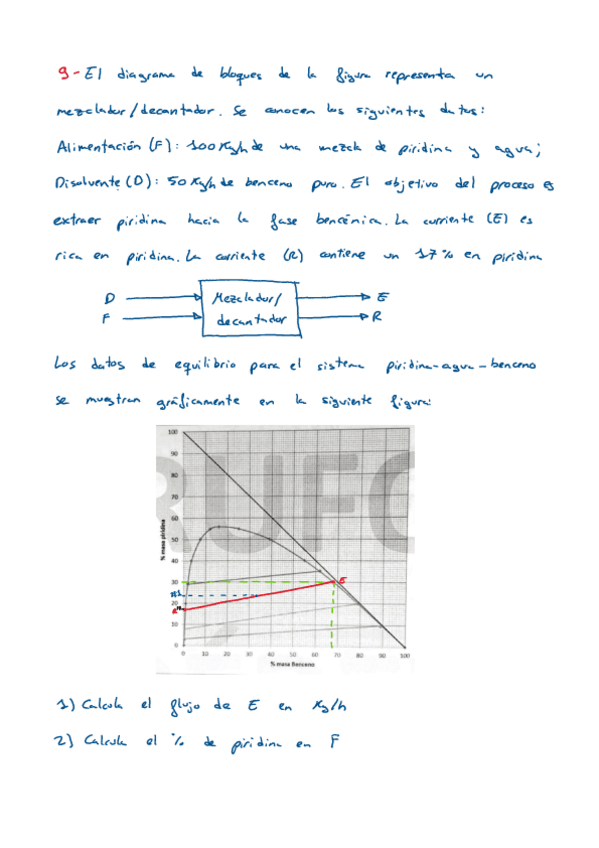 9- El diagrama de bloques de la figura representa un
mezclador/decantador. Se conocen los siguientes datos:
Alimentación (F): 100 Kg/h de una mezcla de piridina y agua;
Disolvente (D): 50 Kg/h de benceno puro. El objetivo del proceso es
extraer piridina hacia la fase bencénica. La corriente (E) es
rica en piridina. La corriente (R) contiene un 17% en piridina
D Mezclador/ E
F decantador R
Los datos de equilibrio para el sistema piridina-agua-benceno
se muestran gráficamente en la siguiente figura:
RUFO
100
90
80
70
60
50
40
30
20
10
0
% masa piridina
E
R
0 10 20 30 40 50 60 70 80 90 100
% masa Benceno
1) Calcula el flujo de E en Kg/h
2) Calcula el % de piridina en F